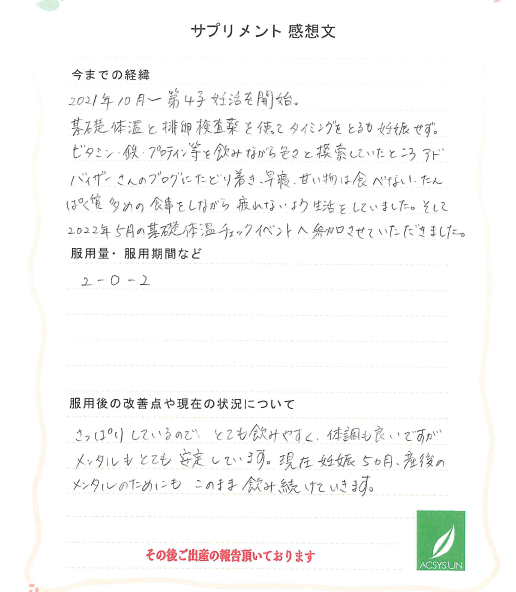 サプリメント 感想文
今までの経緯
2021年10月〜第4子妊活を開始。
基礎体温と排卵検査薬を使ってタイミングをとるも妊娠せず。
ビタミン・鉄・プロテイン等を飲みながら色々と模索していたところアド
バイザーさんのブログにたどり着き、早寝、甘い物は食べない、たん
ぱく質多めの食事をしながら疲れないよう生活をしていました。そして
2022年5月の基礎体温チェックイベントへ参加させていただきました。
服用量・服用期間など
2-0-2
服用後の改善点や現在の状況について
さっぱりしているので、とても飲みやすく、体調も良いですが
メンタルもとても安定しています。現在妊娠5ヵ月、産後の
メンタルのためにもこのまま飲み続けていきます。
その後ご出産の報告頂いております
ACSYSUN